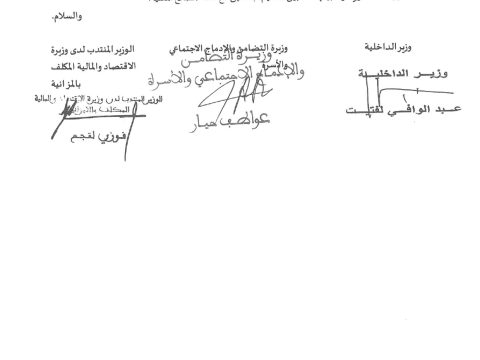 والسلام.
وزير الداخلية
وزير الداخلية
عبد الوافي لفتيت
وزيرة التضامن والإدماج الاجتماعي
والأسرة
وزيرة التضامن
والإدماج الاجتماعي والأسرة
عواطف حيار
الوزير المنتدب لدى وزيرة
الاقتصاد والمالية المكلف
بالميزانية
الوزير المنتدب لدى وزيرة الاقتصاد والمالية
المكلف بالميزانية
فوزي لقجع